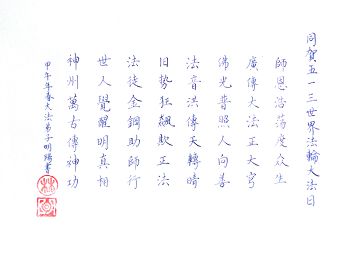 同賀五一三世界法輪大法日
師恩浩蕩度众生
廣傳大法正大穹
佛光普照人向善
法音洪傳天轉晴
旧势狂飆欺正法
法徒金鋼助師行
世人覺醒明真相
神州萬古傳神功
甲午年春大法弟子明瑞書